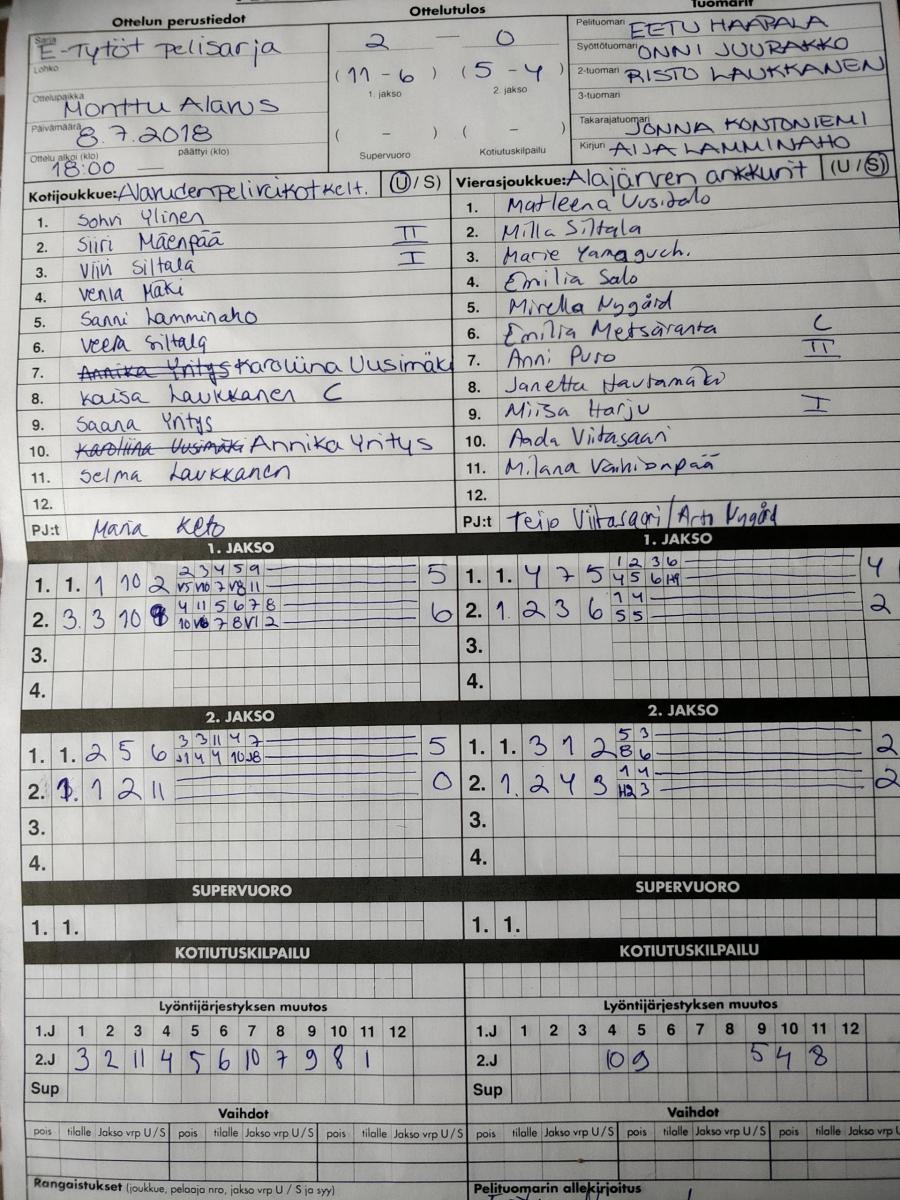 Ottelun perustiedot
Ottelutulos
Tuomarit
Sarja E-Tytöt pelisarja
Lohko
Ottelupaikka Monttu Alavus
Päivämäärä 8.7.2018
Ottelu alkoi (klo) päättyi (klo)
18:00 —
2 — 0
(11 - 6) (5 - 4)
1. jakso 2. jakso
( - ) ( - )
Supervuoro Kotiutuskilpailu
Pelituomari EETU HAAPALA
Syöttötuomari ONNI JUURAKKO
2-tuomari RISTO LAUKKANEN
3-tuomari
Takarajatuomari JONNA KONTONIEMI
Kirjuri AIJA LAMMINAHO
Kotijoukkue: Alavuden peliveikot kelt. (U/S)
1. Sohvi Ylinen
2. Siiri Mäenpää II
3. Viivi Siltala I
4. Venla Mäki
5. Sanni Lamminaho
6. Veera Siltala
7. Annika Yritys Karoliina Uusimäki
8. Kaisa Laukkanen C
9. Saana Yritys
10. Karoliina Uusimäki Annika Yritys
11. Selma Laukkanen
12.
PJ:t Maria Keto
Vierasjoukkue: Alajärven ankkurit (U/S)
1. Matleena Uusitalo
2. Milla Siltala
3. Marie Yamaguch.
4. Emilia Salo
5. Mirella Nygård
6. Emilia Metsäranta C
7. Anni Puro II
8. Janette Hautamäki
9. Miisa Harju I
10. Aada Viitasaari
11. Milana Vainionpää
12.
PJ:t Teijo Viitasaari / Arto Nygård
1. JAKSO
2 3 4 5 9
1. 1. 1 10 2 5
V5 V10 7 V8 11
4 11 5 6 7 8
2. 3. 3 10 6
7 8 V1 2
3.
4.
1. JAKSO
1 2 3 6
1. 1. 4 7 5 4
4 5 6
1 4
2. 1. 2 3 6 2
5 5
3.
4.
2. JAKSO
3 3 11 4 7
1. 1. 2 5 6 5
4 4 10
2. 1. 1 2 11 0
3.
4.
2. JAKSO
5 3
1. 1. 3 1 2 2
8 6
1 4
2. 1. 2 4 3 2
H2 3
3.
4.
SUPERVUORO
1. 1.
SUPERVUORO
1. 1.
KOTIUTUSKILPAILU
KOTIUTUSKILPAILU
Lyöntijärjestyksen muutos
1.J 1 2 3 4 5 6 7 8 9 10 11 12
2.J 3 2 11 4 5 6 10 7 9 8 1
Sup
Lyöntijärjestyksen muutos
1.J 1 2 3 4 5 6 7 8 9 10 11 12
2.J 10 9 5 4 8
Sup
Vaihdot
pois tilalle Jakso vrp U / S pois tilalle Jakso vrp U / S pois tilalle Jakso vrp U / S
Vaihdot
pois tilalle Jakso vrp U / S pois tilalle Jakso vrp U / S pois tilalle Jakso vrp U
Rangaistukset (joukkue, pelaaja nro, jakso vrp U / S ja syy)
Pelituomarin allekirjoitus